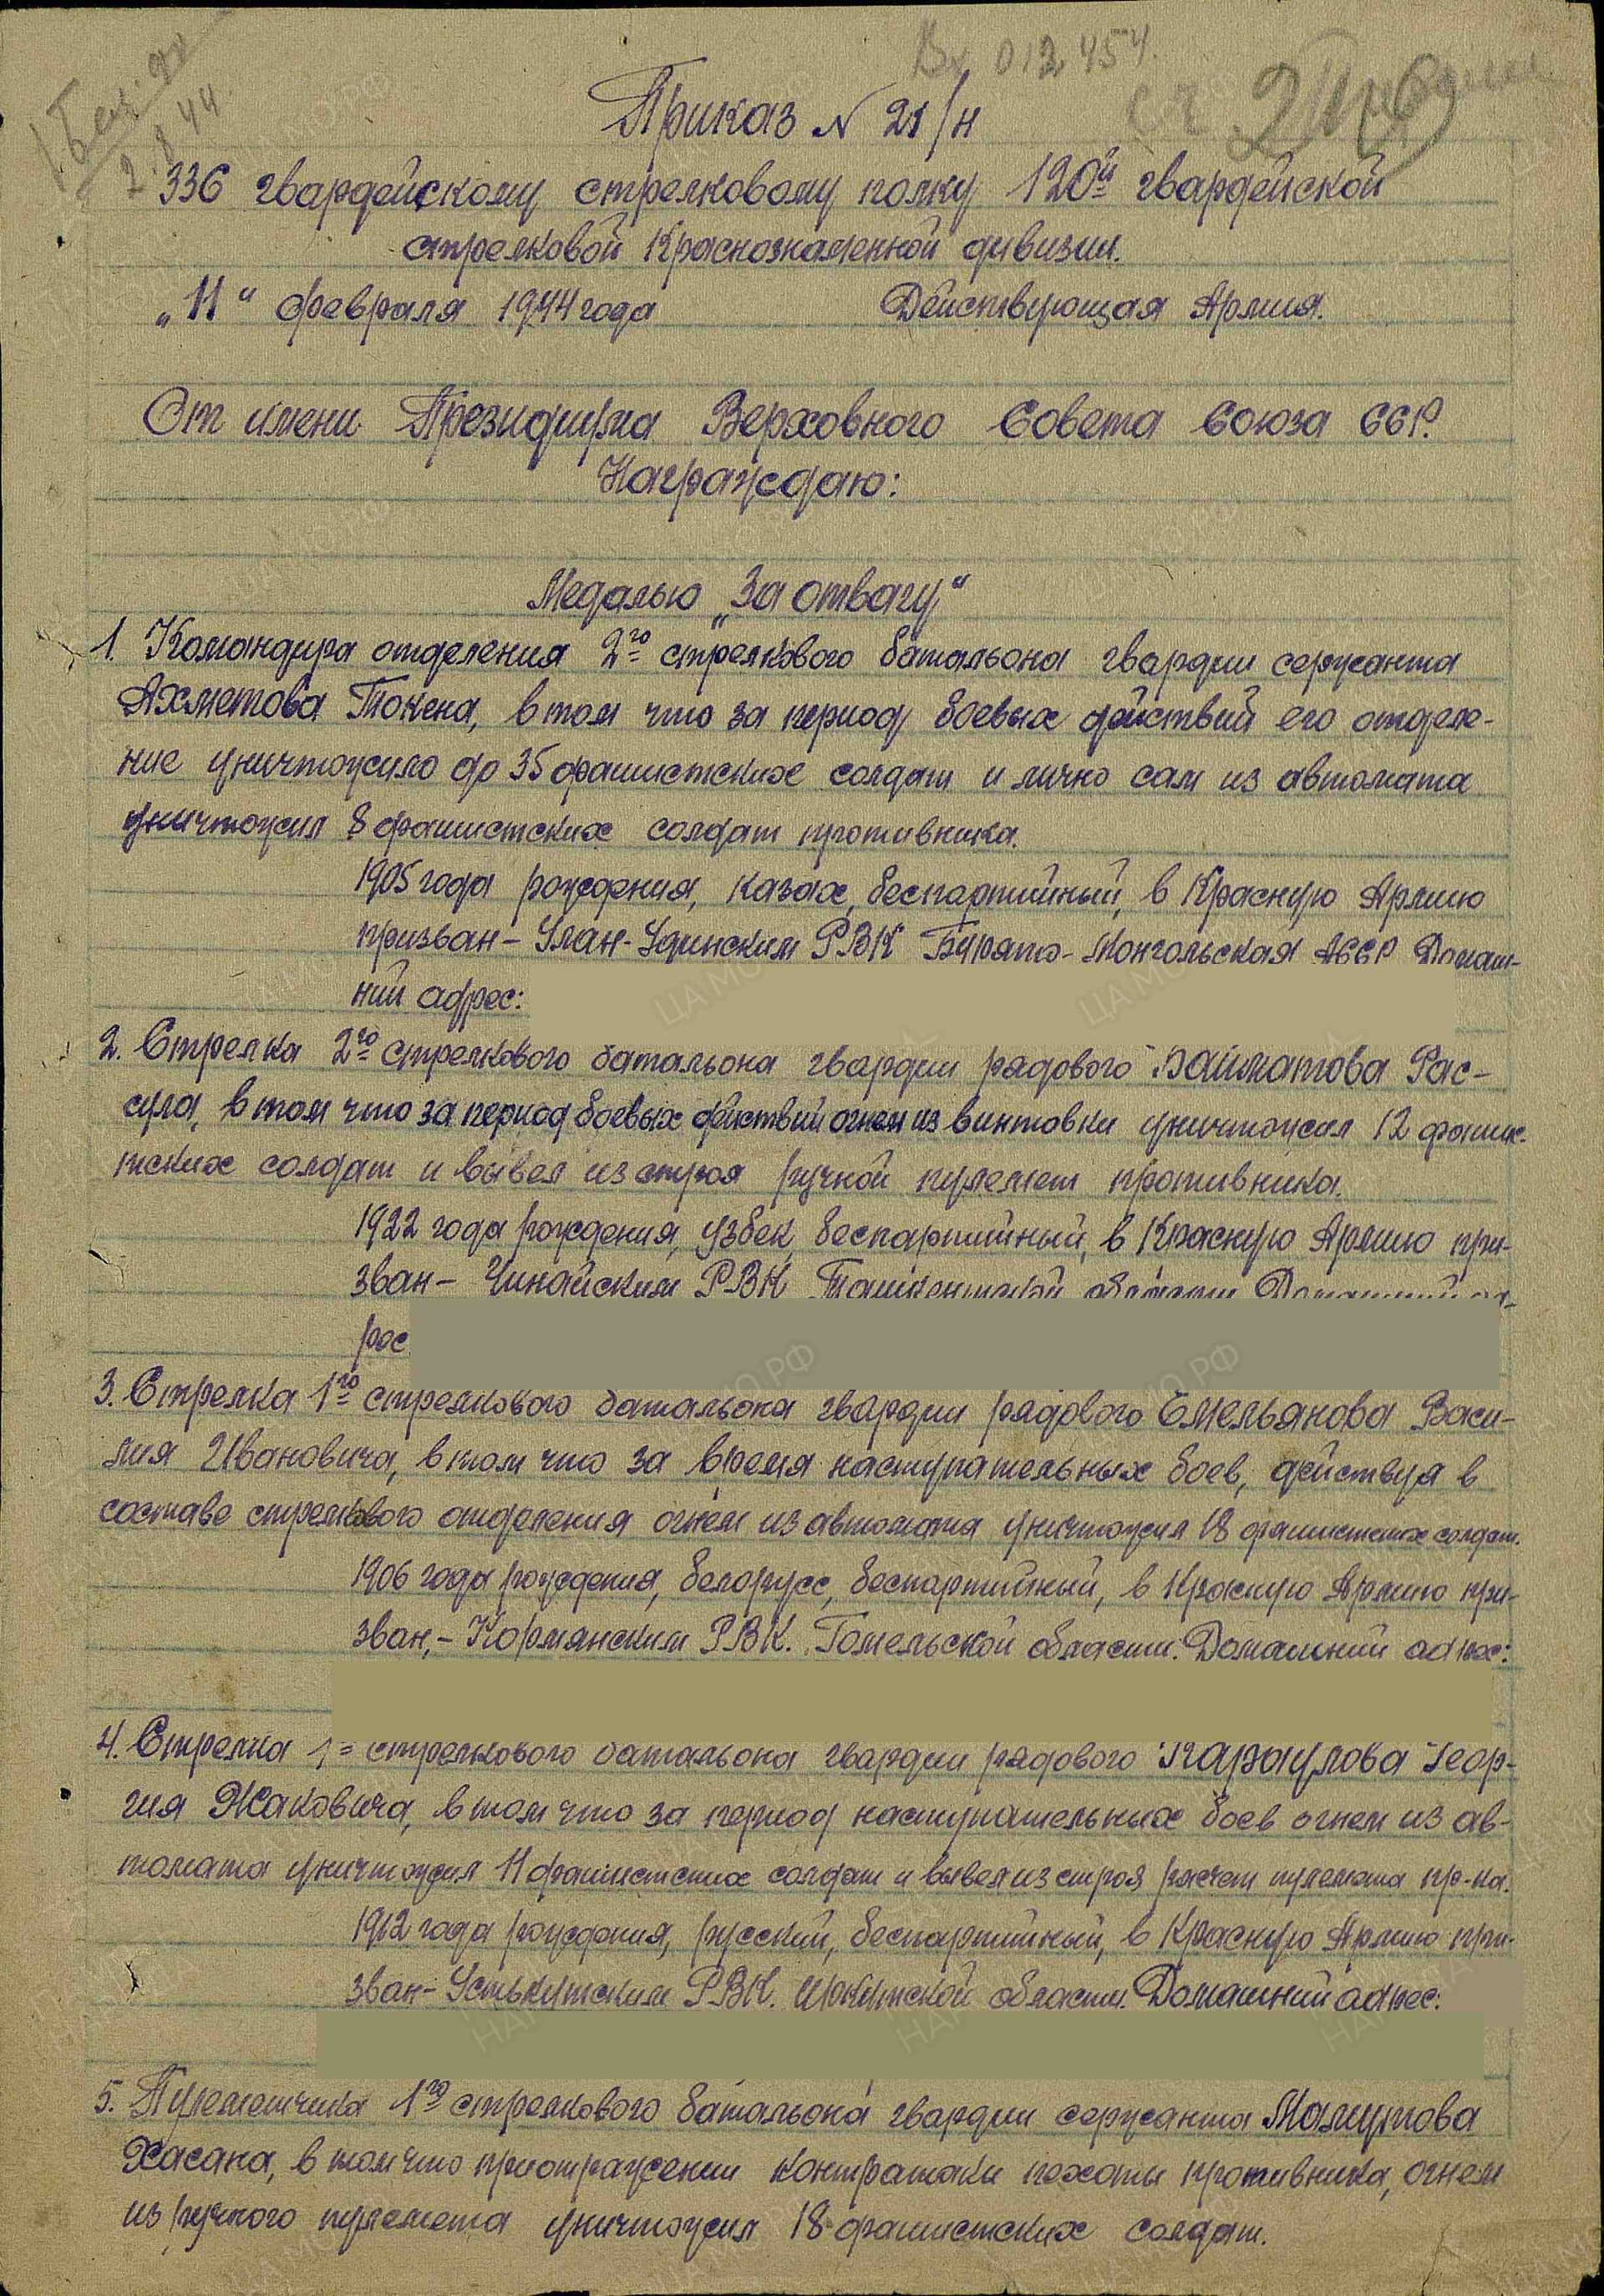 Вх 012454.
2.8.44.
Приказ N 21/н
336 гвардейскому стрелковому полку 120й гвардейской
стрелковой Краснознаменной дивизии.
„11“ февраля 1944 года Действующая Армия.
От имени Президиума Верховного Совета Союза ССР.
Награждаю:
Медалью „За отвагу“
1. Командира отделения 2го стрелкового батальона гвардии сержанта
Ахметова Токена, в том что за период боевых действий его отделе-
ние уничтожило до 35 фашистских солдат и лично сам из автомата
уничтожил 8 фашистских солдат противника.
1905 года рождения, казах, беспартийный, в Красную Армию
призван - Улан-Удинским РВК Бурято-Монгольская АССР Домаш-
ний адрес:
2. Стрелка 2го стрелкового батальона гвардии рядового Байматова Рас-
сула, в том что за период боевых действий огнем из винтовки уничтожил 12 фашис-
тских солдат и вывел из строя ручной пулемет противника.
1922 года рождения, узбек, беспартийный, в Красную Армию при-
зван - Чинайским РВК Ташкентской области Домашний ад-
рес
3. Стрелка 1го стрелкового батальона гвардии рядового Емельянова Васи-
лия Ивановича, в том что за время наступательных боев, действуя в
составе стрелкового отделения огнем из автомата уничтожил 18 фашистских солдат.
1906 года рождения, белорусс, беспартийный, в Красную Армию при-
зван, - Кормянским РВК. Гомельской области. Домашний адрес:
4. Стрелка 1 = стрелкового батальона гвардии рядового Караулова Геор-
гия Жаковича, в том что за период наступательных боев огнем из ав-
томата уничтожил 11 фашистских солдат и вывел из строя расчет пулемета пр-ка.
1912 года рождения, русский, беспартийный, в Красную Армию при-
зван - Усть-Кутским РВК. Иркутской области. Домашний адрес:
5. Пулеметчика 1го стрелкового батальона гвардии сержанта Мамутова
Хасана, в том что при отражении контратаки пехоты противника, огнем
из ручного пулемета уничтожил 18 фашистских солдат.